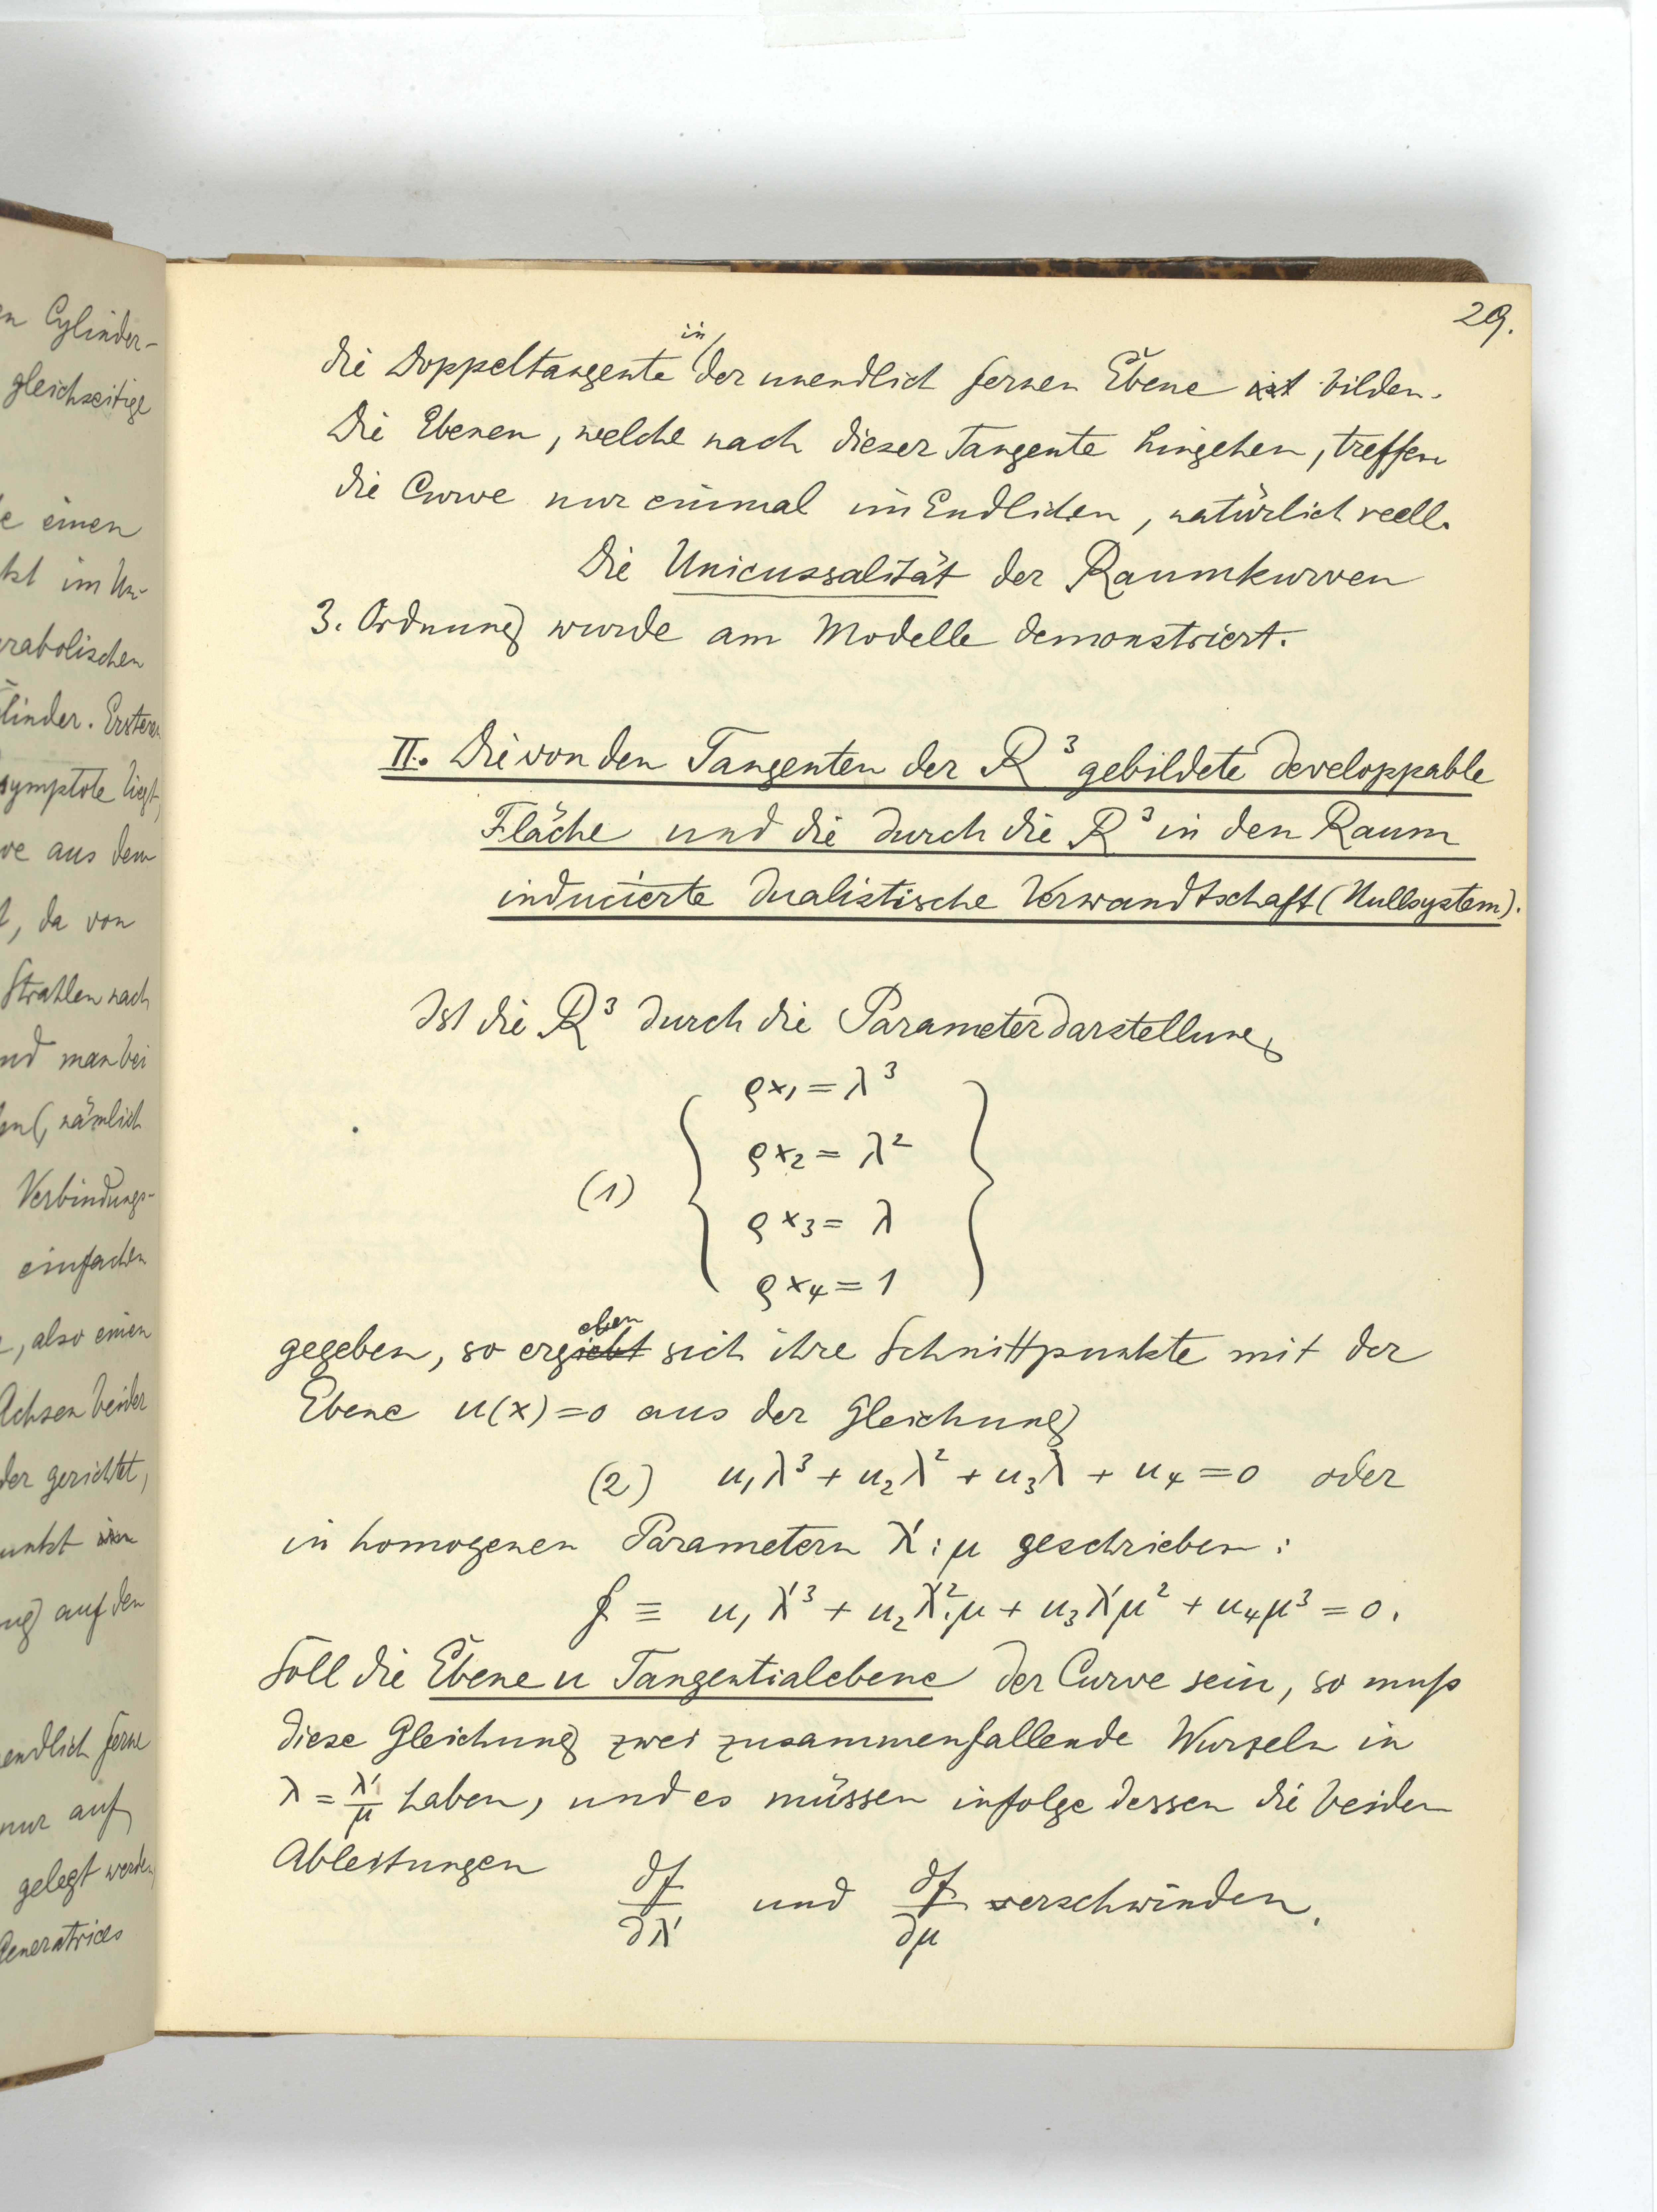 en Cylinder-
gleichzeitige
e einen
kt im Un-
rabolischen
linder. Ersterer
symptote liegt,
ve aus dem
t, da von
Strahlen nach
nd man bei
en (, nämlich
Verbindungs-
einfachen
, also einen
Achsen beider
der gerichtet,
unkt
ng auf den
endlich ferne
nur auf
gelegt werden
Generatrices
29.
die Doppeltangente in der unendlich fernen Ebene ist bilden.
Die Ebenen, welche nach dieser Tangente hingehen, treffen
die Curve nur einmal im Endlichen, natürlich reell.
Die Unicussalität der Raumkurven
3. Ordnung wurde am Modelle demonstriert.
II. Die von den Tangenten der R³ gebildete developpable
Fläche und die durch die R³ in den Raum
inducierte dualistische Verwandtschaft (Nullsystem).
Ist die R³ durch die Parameterdarstellung
ρx₁ = λ³
ρx₂ = λ²
(1)
ρx₃ = λ
ρx₄ = 1
gegeben, so ergiebt eben sich ihre Schnittpunkte mit der
Ebene u(x) = 0 aus der Gleichung
(2) u₁λ³ + u₂λ² + u₃λ + u₄ = 0 oder
in homogenen Parametern λ' : μ geschrieben :
f ≡ u₁λ'³ + u₂λ'²·μ + u₃λ'μ² + u₄μ³ = 0.
Soll die Ebene u Tangentialebene der Curve sein, so muß
diese Gleichung zwei zusammenfallende Wurzeln in
λ = λ'/μ haben, und es müssen infolge dessen die beiden
Ableitungen ∂f/∂λ' und ∂f/∂μ verschwinden.